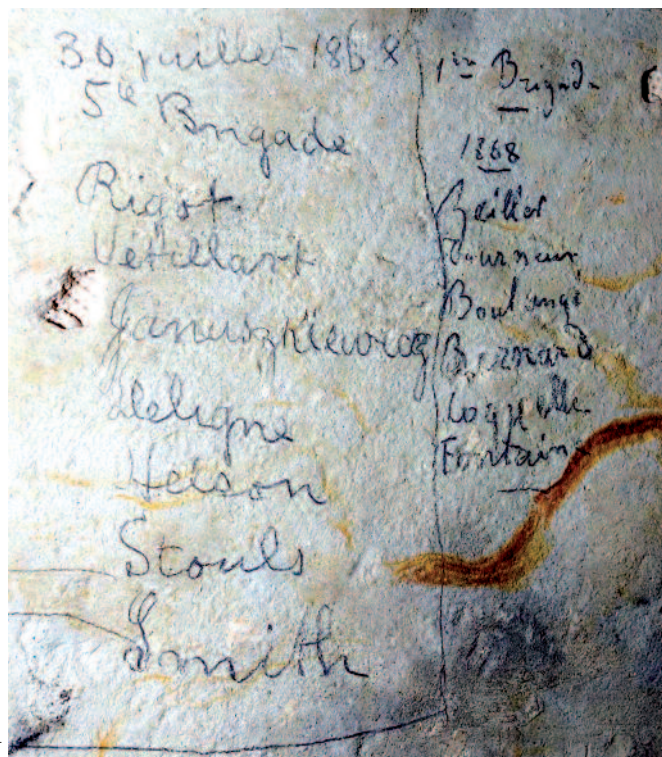 30 juillet 1868
5e Brigade
Rigot
Vétillart
Januszkiewicz
Deligne
Heison
Stouls
Smith
1re Brigade
1868
Baillet
Tourneux
Boulangé
Bernard
Coquelle
Fontaine